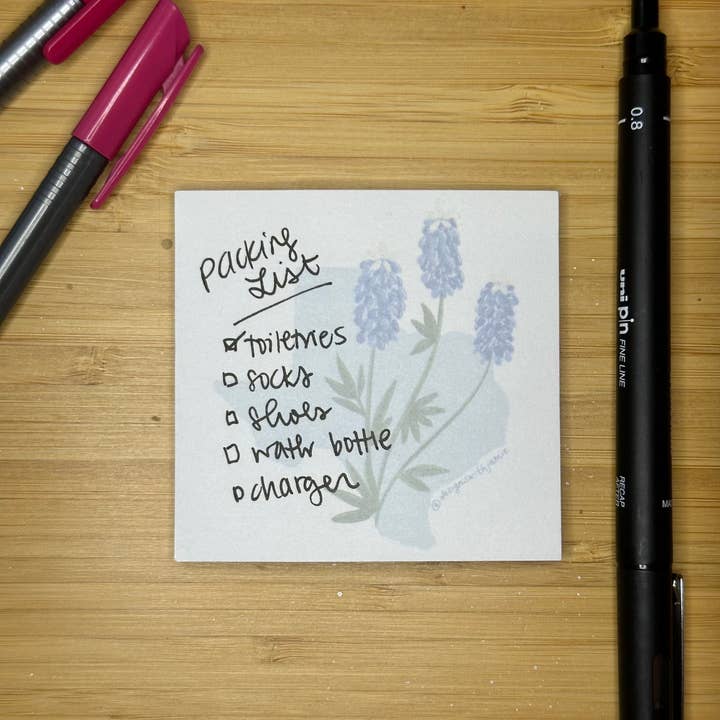 Packing
List
toiletries
socks
shoes
water bottle
charger
0.8
uni pin FINE LINE
RECAP
AFTER